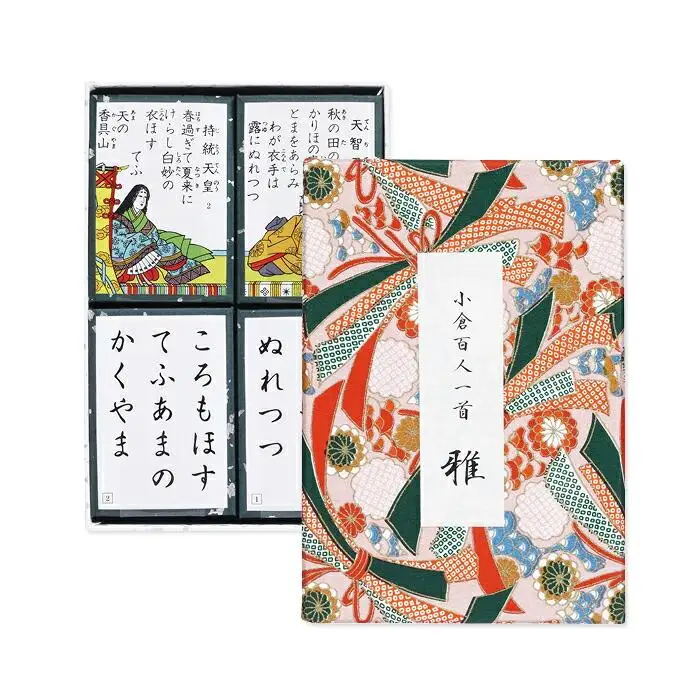 持統天皇 2
春過ぎて夏来に
けらし白妙の
衣ほす
てふ
天の
香具山
天智
秋の田の
かりほの
とまをあらみ
わが衣手は
露にぬれつつ
ころもほす
てふあまの
かくやま
2
ぬれつつ
1
小倉百人一首
雅